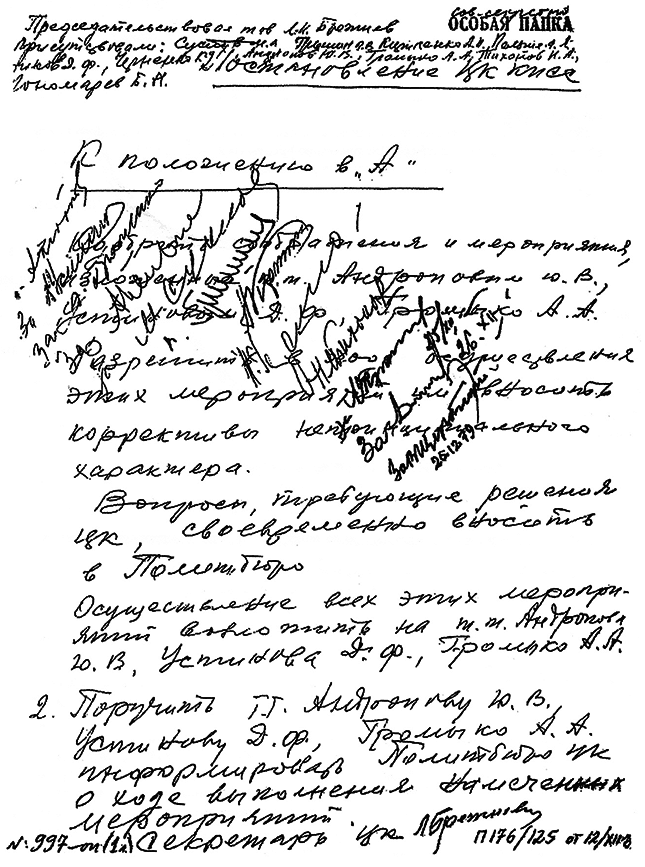 сов. секретно
ОСОБАЯ ПАПКА
Председательствовал тов. Л.И. Брежнев
Присутствовали: Суслов М.А., Гришин В.В., Кириленко А.П., Пельше А.Я.,
Устинов Д.Ф., Черненко К.У., Андропов Ю.В., Громыко А.А., Тихонов Н.А.,
Пономарев Б.Н.
Постановление ЦК КПСС
К положению в „А“
1. Одобрить соображения и мероприятия,
изложенные т.т. Андроповым Ю.В.,
Устиновым Д.Ф., Громыко А.А.
Разрешить в ходе осуществления
этих мероприятий им вносить
коррективы непринципиального
характера.
Вопросы, требующие решения
ЦК, своевременно вносить
в Политбюро
Осуществление всех этих мероприя-
тий возложить на т.т. Андропова
Ю.В., Устинова Д.Ф., Громыко А.А.
За
За
За
25/XII
26.XII
За Щербицкий
26.12.79
2. Поручить т.т. Андропову Ю.В.,
Устинову Д.Ф., Громыко А.А.
информировать Политбюро ЦК
о ходе выполнения намеченных
мероприятий.
Секретарь ЦК Л. Брежнев
№ 997-оп (1л)
П 176/125 от 12/XII